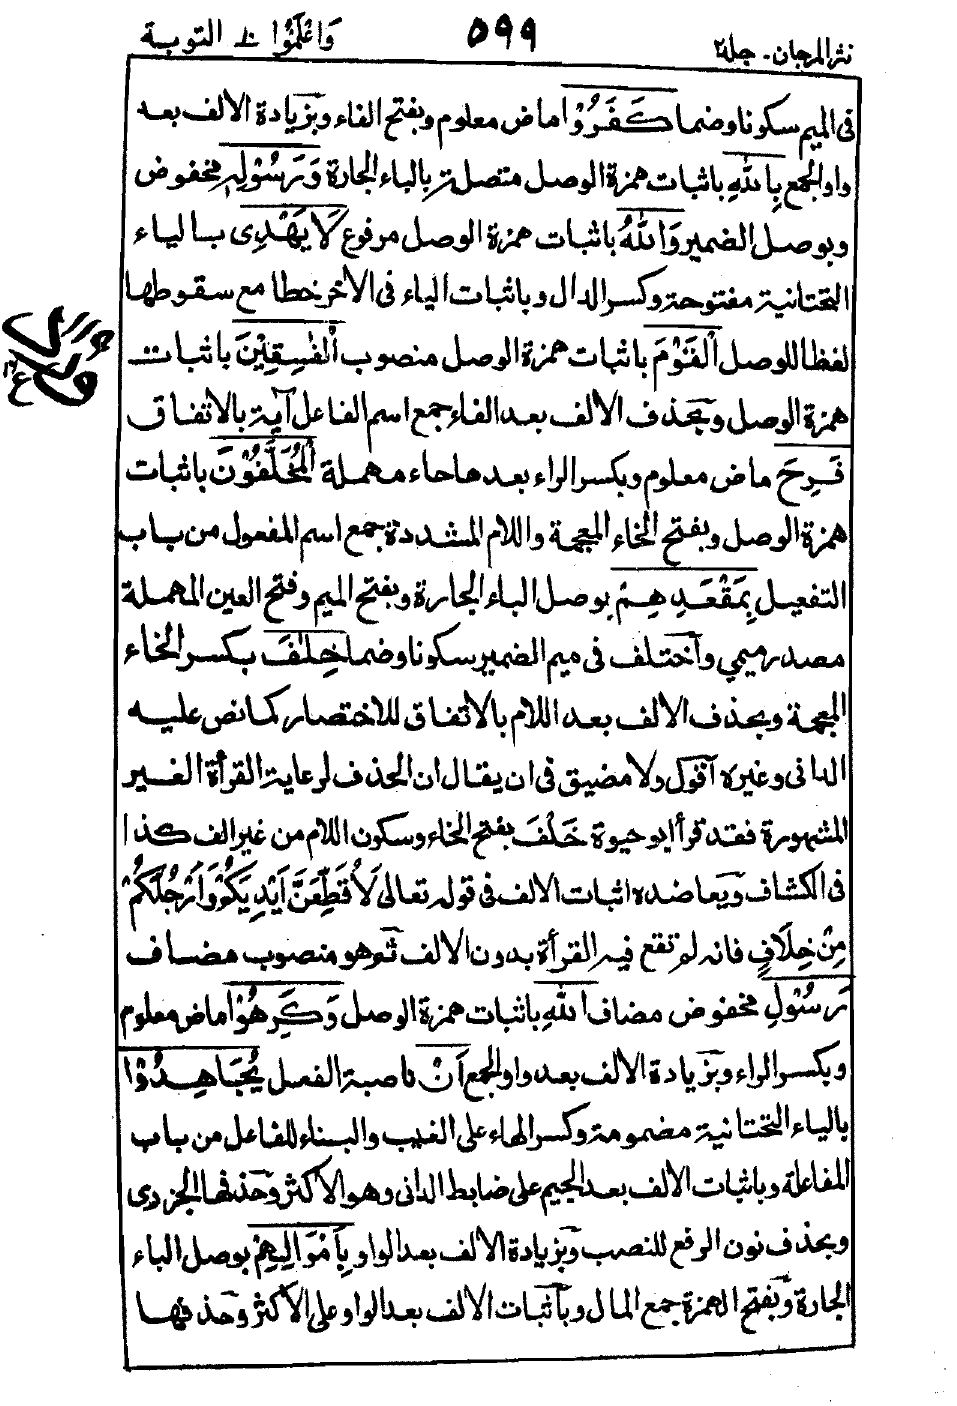 نثر المرجان. جلد٢ ٥٩٩ وَاعْلَمُوْا التوبة
فى الميم سكونا وضما كَفَرُوْا ماض معلوم وبفتح الفاء وبزيادة الالف بعد
واو الجمع بِاللّٰهِ باثبات همزة الوصل متصلة بالباء الجارة وَرَسُوْلِهٖ مخفوض
وبوصل الضمير وَاللّٰهُ باثبات همزة الوصل مرفوع لَا يَهْدِى بالياء
التحتانية مفتوحة وكسر الدال وباثبات الياء فى الآخر خطا مع سقوطها
لفظا للوصل الْقَوْمَ باثبات همزة الوصل منصوب الْفٰسِقِيْنَ باثبات
همزة الوصل وبحذف الالف بعد الفاء جمع اسم الفاعل آية بالاتفاق
فَرِحَ ماض معلوم وبكسر الراء بعدها حاء مهملة الْمُخَلَّفُوْنَ باثبات
همزة الوصل وبفتح الخاء المعجمة واللام المشددة جمع اسم المفعول من باب
التفعيل بِمَقْعَدِهِمْ بوصل الباء الجارة وبفتح الميم وفتح العين المهملة
مصدر ميمي واختلف فى ميم الضمير سكونا وضما خِلٰفَ بكسر الخاء
المعجمة وبحذف الالف بعد اللام بالاتفاق للاختصار كما نص عليه
الدانى وغيره اقول ولا مضيق فى ان يقال ان الحذف لرعاية القرأة الغير
المشهورة فقد قرأ ابو حيوة خَلْفَ بفتح الخاء وسكون اللام من غير الف كذا
فى الكشاف ويعاضده اثبات الالف فى قوله تعالى لَاُقَطِّعَنَّ اَيْدِيَكُمْ وَاَرْجُلَكُمْ
مِنْ خِلَافٍ فانه لم تقع فيه القرأة بدون الالف ثم هو منصوب مضاف
رَسُوْلِ مخفوض مضاف اللّٰهِ باثبات همزة الوصل وَكَرِهُوْا ماض معلوم
وبكسر الراء وبزيادة الالف بعد واو الجمع اَنْ ناصبة الفعل يُجَاهِدُوْا
بالياء التحتانية مضمومة وكسر الهاء على الغيب والبناء للفاعل من باب
المفاعلة وباثبات الالف بعد الجيم على ضابط الدانى وهو الاكثر وحذفها الجزرى
وبحذف نون الرفع للنصب وبزيادة الالف بعد الواو بِاَمْوَالِهِمْ بوصل الباء
الجارة وبفتح الهمزة جمع المال وباثبات الالف بعد الواو على الاكثر وحذفها